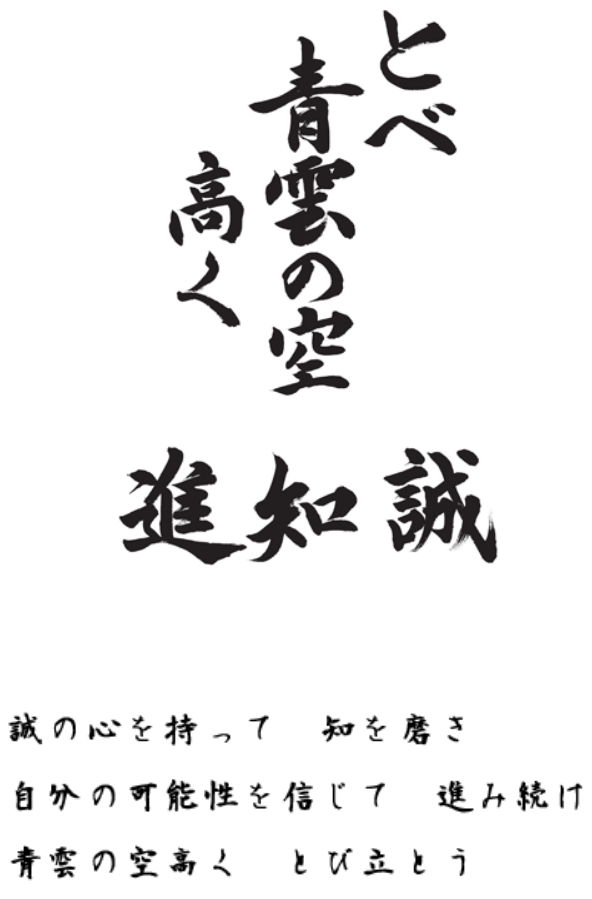 とべ
青雲の空
高く
誠知進
誠の心を持って　知を磨き
自分の可能性を信じて　進み続け
青雲の空高く　とび立とう